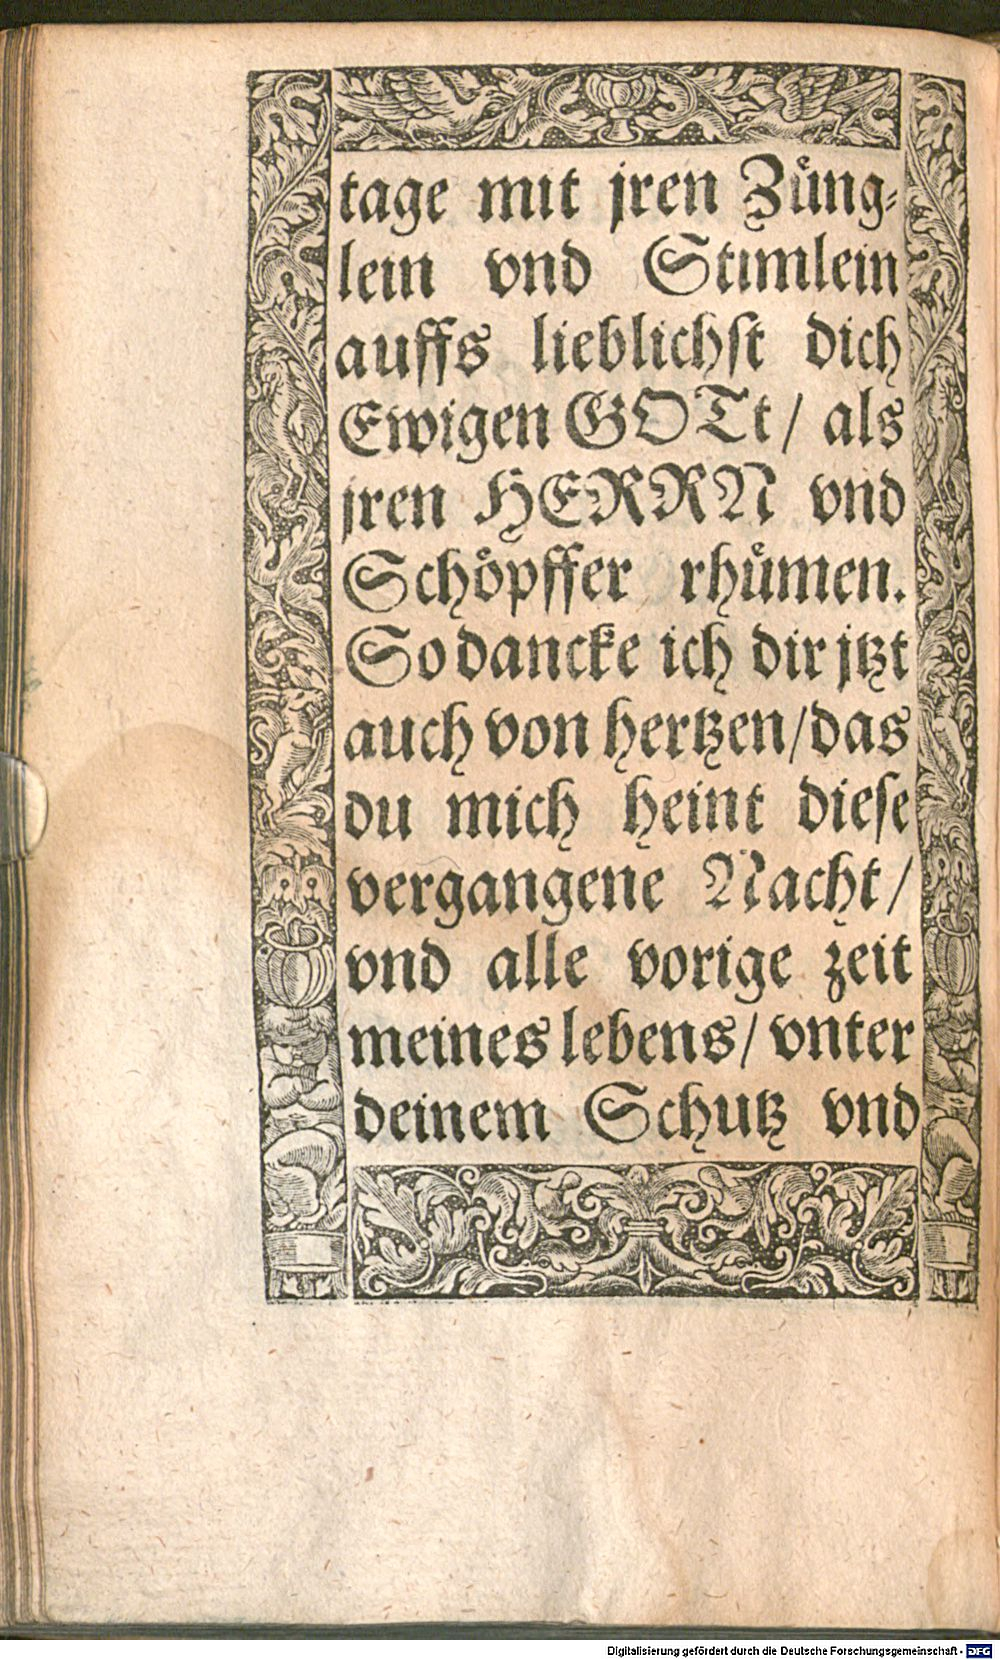 tage mit jren Zuͤng⸗
lein vnd Stimlein
auffs lieblichſt dich
Ewigen GOTt / als
jren HERRN vnd
Schoͤpffer rhuͤmen.
So dancke ich dir jtzt
auch von hertzen / das
du mich heint dieſe
vergangene Nacht /
vnd alle vorige zeit
meines lebens / vnter
deinem Schutz vnd
Digitalisierung gefördert durch die Deutsche Forschungsgemeinschaft - DFG